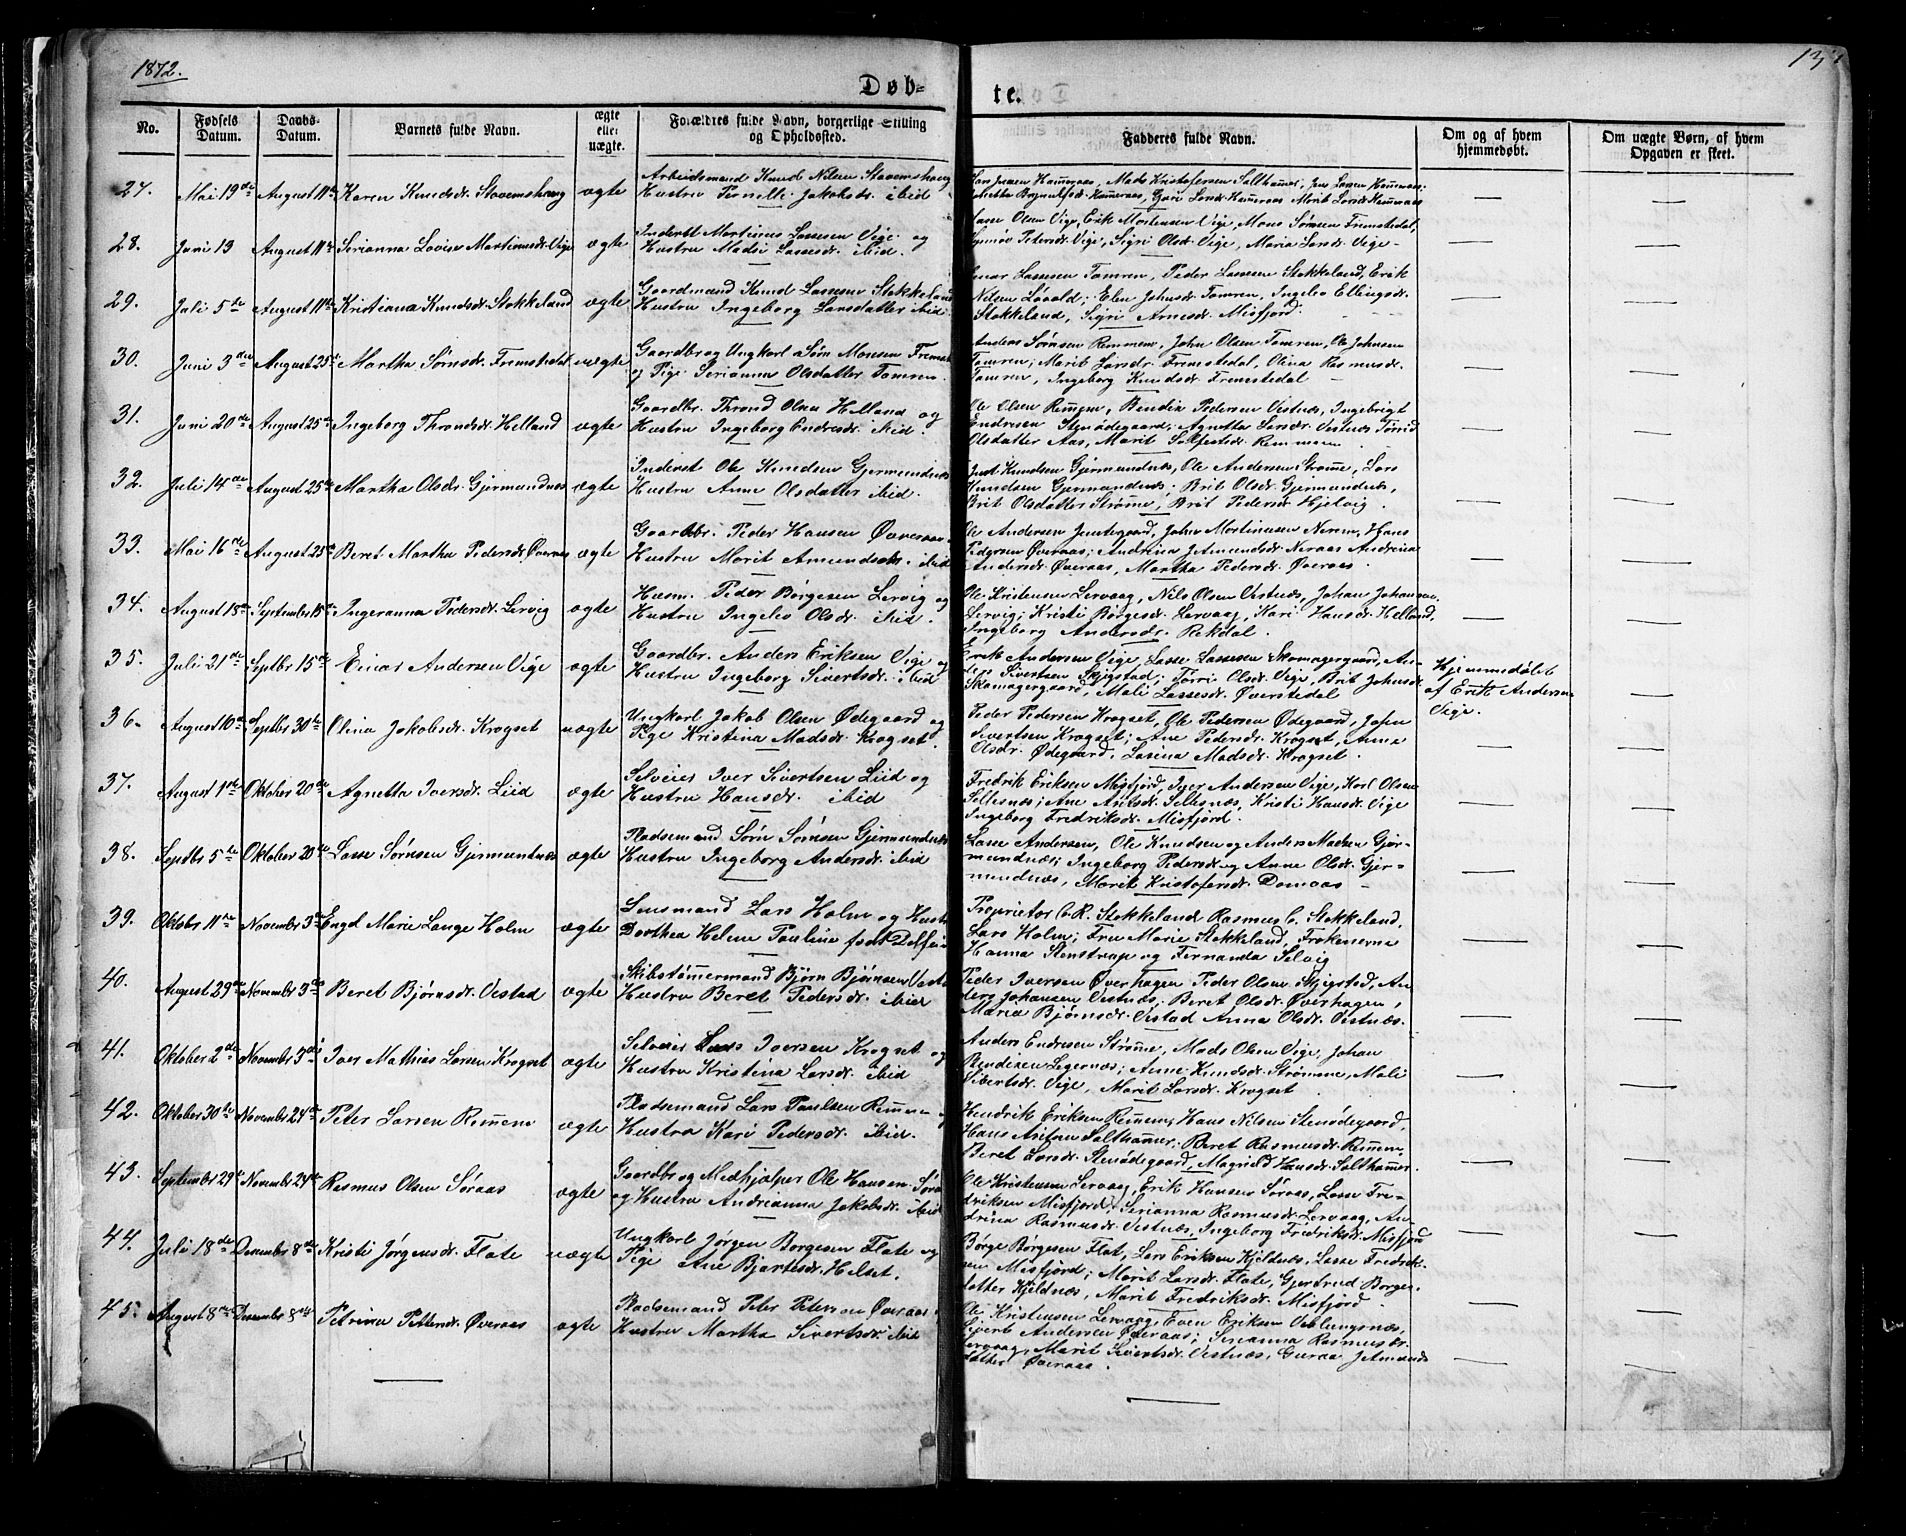 1872.
Døb-
te.
No.
Fødsels Datum.
Daabs- Datum.
Barnets fulde Navn.
ægte eller uægte.
Forældres fulde Navn, borgerlige Stilling og Opholdssted.
Fadderes fulde Navn.
Om og af hvem hjemmedøbt.
Om uægte Børn, af hvem Opgaven er skeet.
27. Mai 19de August 11te Karen Knudsdr. Stavemshaug ægte
Arbeidsmand Knud Nilsen Stavemshaug
Hustru Pernille Jakobsdr. ibid
Lars Jensen Hammeraas, Mads Kristofersen Salthammer, Jens Larsen Hammeraas,
Hammeraas, Guri Larsdr. Hammeraas Marit Larsdr. Hammeraas
28. Juni 13 August 11te Serianna Lovise Martinusdr. Vige ægte
Inderst Martinus Lassesen Vige og
Hustru Madsi Lassesdr. ibid.
Lasse Olsen Vige, Erik Mortensen Vige, Mons Sørnsen Fremstedal,
Synnøv Petersdr. Vige, Sigri Olsdr. Vige, Maria Larsdr. Vige
29. Juli 5te August 11te Kristiana Knudsdr. Stokkeland ægte
Gaardmand Knud Lassesen Stokkeland
Hustru Ingeborg Larsdatter ibid
Lassesen Tomren, Peder Lassesen Stokkeland, Erik
Nilsen Løvold; Elen Johnsdr. Tomren, Ingeleo Ellingsdr.
Stokkeland, Sigri Arnesdr. Misfjord.
30. Juni 3die August 25de Martha Sørnsdr. Fremstedal uægte
Gaardbr og Ungkarl Sørn Monsen Fremst
og Pige Serianna Olsdatter Tomren.
Anders Sørnsen Remmem, John Olsen Tomren, Ole Johnsen
Tomren; Marit Larsdr. Fremstedal, Olina Rasmusdr.
Tomren, Ingeborg Knudsdr. Fremstedal
31. Juni 20de August 25de Ingeborg Throndsdr. Helland ægte
Gaardbr. Thrond Olsen Helland og
Hustru Ingeborg Endresdr. ibid.
Ole Olsen Remmem, Bendix Pedersen Vestnes, Ingebrigt
Endresen Stenødegaard; Agnethe Larsdr. Vestnes Torrid
Olsdatter Aas, Marit Solfestsdr. Remmem
32. Juli 14de August 25de Martha Olsdr. Gjermundnes ægte
Inderst Ole Knudsen Gjermundnes
Hustru Anne Olsdatter ibid.
Knudsen Gjermundnes, Ole Andersen Strømme, Lars
Knudsen Gjermundnes; Brit Olsdr. Gjermundnes,
Brit Olsdatter Strømme, Brit Pedersdr. Hjelvig
33. Mai 16de August 25de Beret Martha Pedersdr. Øveraas ægte
Gaardbr. Peder Hansen Øveraas
Hustru Marit Amundsdr. ibid
Ole Andersen Jentegaard, John Martinusen Nerem, Hans
Pedersen Øveraas; Andrina J. Amundsdr. Neraas Andrina
Andersdr. Øveraas, Martha Pedersdr. Øveraas.
34. August 18de September 15de Ingeranna Pedersdr. Lervig ægte
Husm. Peder Børgesen Lervig og
Hustru Ingeleo Olsdr. ibid.
Ole Kristensen Lervaag, Nils Olsen Vestnes, Johan Johansen
Lervig; Kristi Børgesdr. Lervaag, Kari Hansdr. Helland,
Ingeborg Andersdr. Rekdal.
35. Juli 21de Septbr 15de Einar Andersen Vige ægte
Gaardbr. Anders Eriksen Vige og
Hustru Ingeborg Sivertsdr. ibid
Erik Andersen Vige, Lasse Lassesen Skomagergaard, An-
ders Sivertsen Skjegstad; Torri Olsdr. Vige, Brit Johnsdr.
Skomagergaard, Mali Lassesdr. Øverstedal
Hjemmedøbt
af Erik Andersen
Vige.
36. August 10de Septbr 30te Olina Jakobsdr. Krogset uægte
Ungkarl Jakob Olsen Ødegaard og
Pige Kristina Madsdr. Krogset.
Peder Pedersen Krogset, Ole Pedersen Ødegaard, John
Sivertsen Krogset; Ane Pedersdr. Krogset, Anne
Olsdr. Ødegaard, Lasina Madsdr. Krogset.
37. August 1ste Oktober 20de Agnetta Iversdr. Liid ægte
Selveier Iver Sivertsen Liid og
Hustru Hansdr. ibid
Fredrik Eriksen Misfjord, Iver Andersen Vige, Karl Olsen
Sellesnæs; Ane Antsdr. Sellesnæs, Kristi Hansdr. Vige
Ingeborg Fredriksdr. Misfjord.
38. Septbr 5te Oktober 20de Lasse Sørnsen Gjermundnæs ægte
Pladsemand Sørn Sørnsen Gjermundnæs
Hustru Ingeborg Andersdr. ibid
Lasse Andersen, Ole Knudsen og Anders Madsen Gjer-
mundnæs; Ingeborg Pedersdr. og Anne Olsdr. Gjer-
mundnæs, Marit Kristofersdr. Domaas
39. Oktobr 11te November 3die Engel Marie Lange Holm ægte
Lensmand Lars Holm og Hustr
Dorthea Helene Pauline født
Proprietær C. R. Stokkeland Rasmus C. Stokkeland,
Lars Holm; Fru Marie Stokkeland, Frøkenerne
Hanna Stenstrup og Fernanda Selvig
40. August 29de November 3die Beret Bjørnsdr. Vestad ægte
Skibstømmermand Bjørn Bjørnsen Vestad
Hustru Beret Pedersdr. ibid
Peder Iversen Øverhagen Peder Olsen Skjegsted, An-
ders Johansen Vestnæs; Beret Olsdr. Øverhagen,
Maria Bjørnsdr. Vestad Anna Olsdr. Vestnæs.
41. Oktober 2den November 3die Iver Mathias Larsen Krogset ægte
Selveier Lars Iversen Krogset og
Hustru Kristina Larsdr. ibid
Anders Endresen Strømme, Mads Olsen Vige, Johan
Bendixen Legernæs; Anne Knudsdr. Strømme, Mali
Sivertsdr. Vige, Marit Larsdr. Krogset
42. Oktober 30te November 24de Peter Larsen Remmem ægte
Pladsemand Lars Paulsen Remmem
Hustru Kari Pedersdr. ibid.
Hendrik Eriksen Remmem, Hans Nilsen Stenødegaard,
Hans Salthammer; Beret Rasmusdr. Remmem
Beret Larsdr. Stenødegaard, Magnild Hansdr. Salthammer.
43. September 29de November 24de Rasmus Olsen Søraas ægte
Gaardbr og Medhjælper Ole Hansen Søraa
og Hustru Andrianna Jakobsdr. ibid
Ole Kristensen Lervaag, Erik Hansen Søraas, Lasse Fre-
driksen Misfjord; Serianna Rasmusdr. Lervaag, An-
drina Rasmusdr. Vestnæs, Ingeborg Fredriksdr. Misfjord
44. Juli 18de December 8de Kristi Jørgensdr. Flate uægte
Ungkarl Jørgen Børgesen Flate og
Pige Ane Bjartesdr. Helset.
Børge Børgesen Flat, Lars Eriksen Kjeldnæs, Lasse Fredrik-
sen Misfjord; Marit Larsdr. Flate, Gjertrud Borges-
datter Kjeldnæs, Marit Fredriksdr. Misfjord.
45. August 8de December 8de Petrina Pettersdr. Øveraas ægte
Pladsemand Peter Petersen Øveraas
Hustru Martha Sivertsdr. ibid
Ole Kristensen Lervaag, Even Eriksen Veblungsnæs,
Sivert Andersen Øveraas; Serianna Rasmusdr.
Lervaag, Marit Sivertsdr. Vestnæs, Guraa J. Amunds
datter Øveraas.